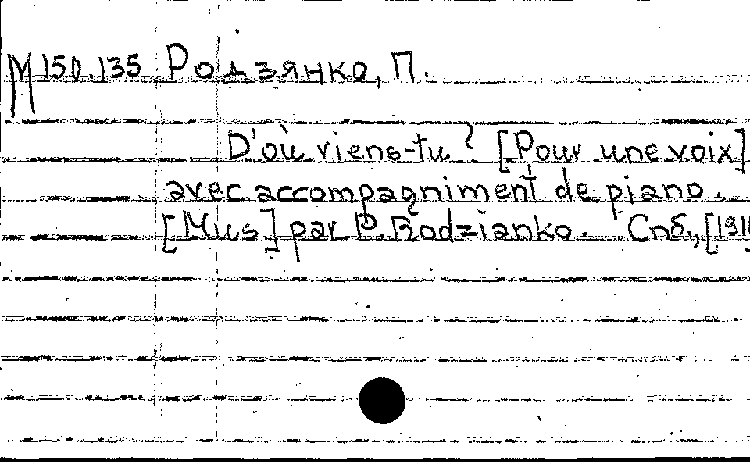 М 150.135 Родзянко, П.
D'où viens-tu? [Pour une voix]
avec accompagniment de piano.
[Mus] par P. Rodzianko. Спб.,